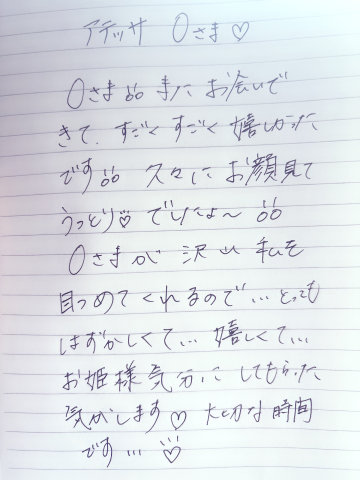 アテッサ Oさま♡
Oさま♡♡ また お会いで
きて、すごく すごく 嬉しかった
です♡♡ 久々に お顔見て
うっとり♡ でしたょ〜 ♡♡
Oさまが 沢山 私を
見つめてくれるので... とっても
はずかしくて... 嬉しくて...
お姫様気分に してもらった
気がします♡ 大切な時間
です... ♡